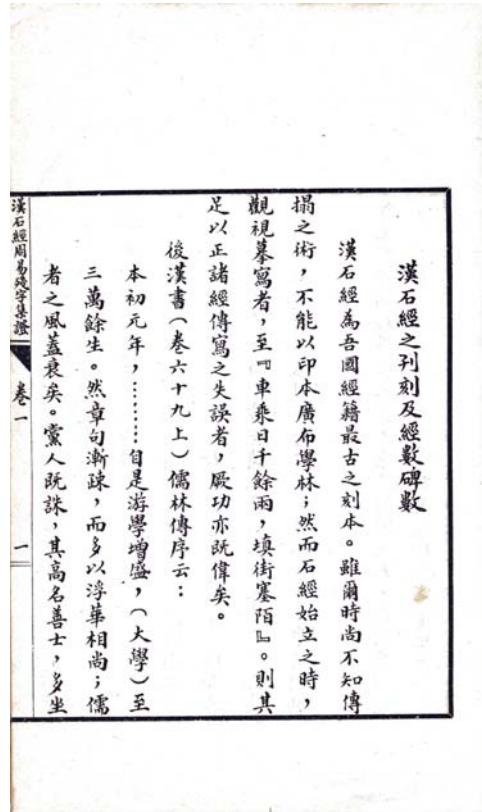 漢石經之刋刻及經數碑數
漢石經為吾國經籍最古之刻本。雖爾時尚不知傳
搨之術，不能以印本廣布學林；然而石經始立之時，
觀視摹寫者，至『車乘日千餘兩，填街塞陌』。則其
足以正諸經傳寫之失誤者，厥功亦既偉矣。
後漢書（卷六十九上）儒林傳序云：
本初元年，………自是游學增盛，（大學）至
三萬餘生。然章句漸疎，而多以浮華相尚；儒
者之風蓋衰矣。黨人既誅，其高名善士，多坐
漢石經周易殘字集證
卷一
一